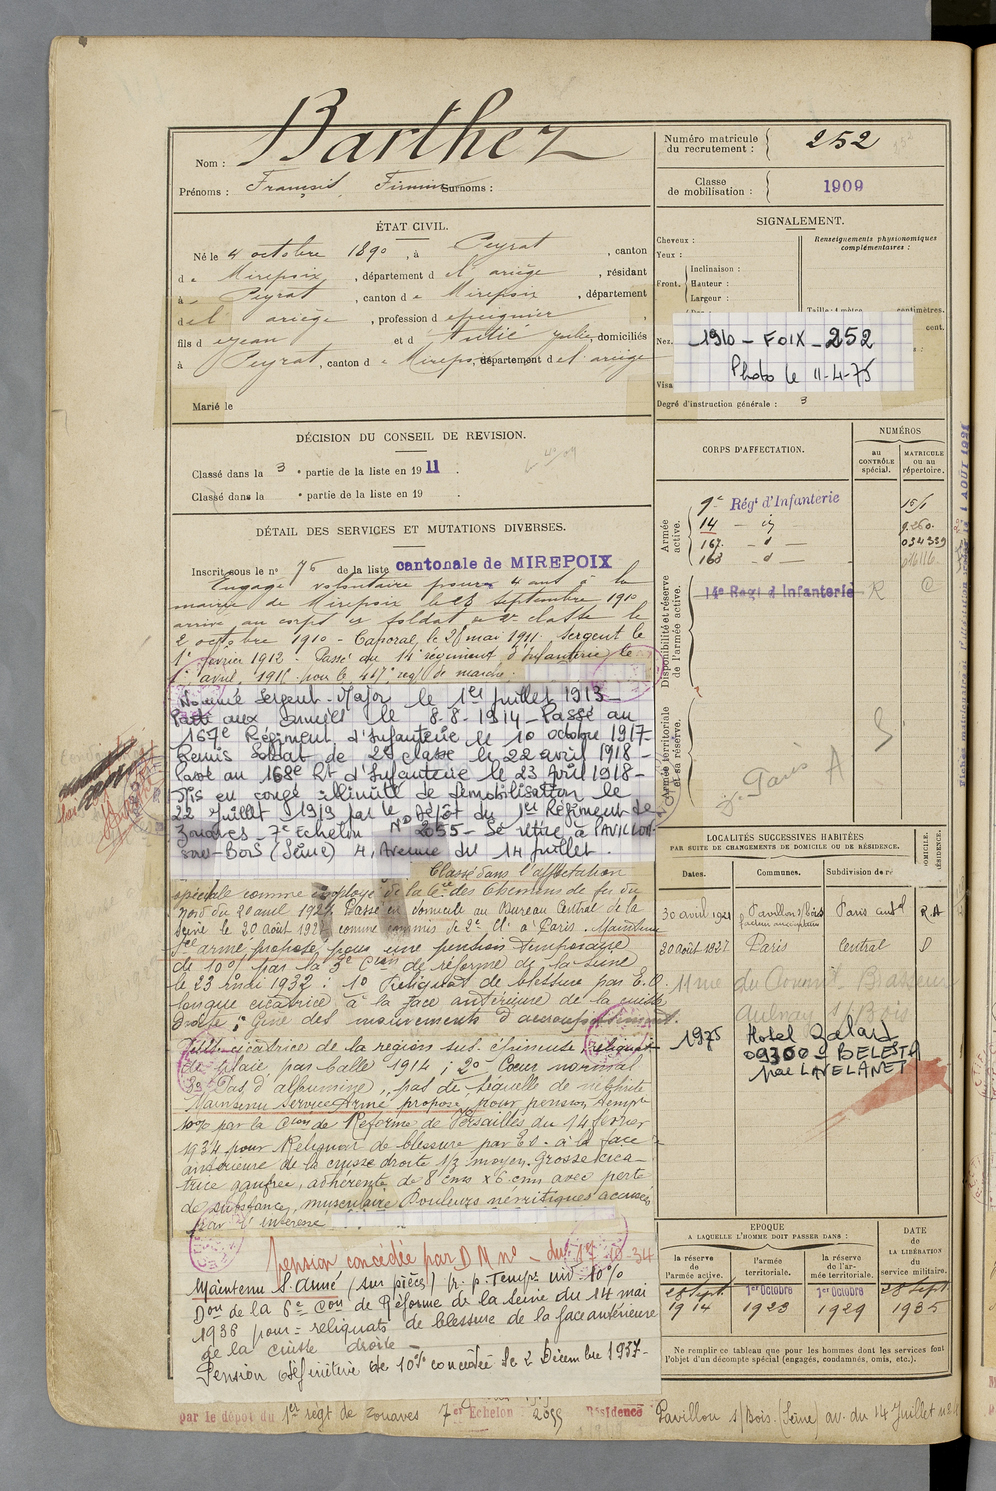 Nom : Barthez
Prénoms : François Firmin Surnoms :
Numéro matricule du recrutement : 252
Classe de mobilisation : 1909
ÉTAT CIVIL.
Né le 4 octobre 1890, à Peyrat, canton
de Mirepoix, département de l'ariège, résidant
à Peyrat, canton de Mirepoix, département
de l'ariège, profession d'epicier
fils d'ejean et d'Autié Julie, domiciliés
à Peyrat, canton de Mirepoix, département de l'ariège
Marié le
SIGNALEMENT.
Cheveux :
Yeux :
Front. Inclinaison :
Hauteur :
Largeur :
Renseignements physionomiques complémentaires :
Taille : 1 mètre centimètres.
cent.
Nez.
1910 - FOIX - 252
Photo le 11-4-75
Visa
Degré d'instruction générale : 3
DÉCISION DU CONSEIL DE REVISION.
Classé dans la 3e partie de la liste en 1911.
Classé dans la e partie de la liste en 19 .
DÉTAIL DES SERVICES ET MUTATIONS DIVERSES.
Inscrit sous le no 76 de la liste cantonale de MIREPOIX
Engagé volontaire pour 4 ans à la
mairie de Mirepoix le 28 septembre 1910
arrivé au corps et soldat de 2e classe le
2 octobre 1910 - Caporal le 26 mai 1911. Sergent le
1er février 1912. Passé au 14e régiment d'Infanterie le
1er avril
Nommé Sergent-Major le 1er juillet 1913
Parti aux armées le 8-8-1914 - Passé au
167e Régiment d'Infanterie le 10 octobre 1917-
Remis Soldat de 2e classe le 22 avril 1918-
Passé au 168e Rt d'Infanterie le 23 Avril 1918-
Mis en congé illimité de démobilisation le
22 Juillet 1919 par le Dépôt du 1er Régiment de
Zouaves - 7e Echelon No 2055 - Se retire à PAVILLON-
sous-BOIS (Seine) 4, Avenue du 14 Juillet.
Classé dans l'affectation
spéciale comme employé de la Cie des Chemins de fer du
Nord du 20 avril 1927. Passé en domicile au Bureau Central de la
Seine le 20 août 1927 comme commis de 2e Cl. à Paris. Maintenu
Sce armé proposé pour une pension temporaire
de 10% par la 3e Cion de réforme de la Seine
le 23 mai 1932 : 1o Reliquat de blessure par E.O.
longue cicatrice à la face antérieure de la cuisse
droite ; Gêne des mouvements d'accroupissement.
Petite cicatrice de la région sus-épineuse, reliquat
de plaie par balle 1914 ; 2o Cœur normal
3o Pas d'albumine, pas de séquelle de néphrite
Maintenu service armé, proposé pour pension tempre
10% par la Cion de Réforme de Versailles du 14 février
1934 pour Reliquat de blessure par E.O. à la face
antérieure de la cuisse droite 1/3 moyen. Grosse cica-
trice gaufrée, adhérente de 8 cms x 6 cms avec perte
de substance musculaire Douleurs névritiques accusées
par l'intéressé
Pension concédée par D M no - du 17.10.34
Maintenu S. Armé (sur pièces) (r. p. Temp. ind. 10%
Don de la 6e Con de Réforme de la Seine du 14 mai
1936 pour = reliquats de blessure de la face antérieure
de la cuisse droite -
Pension définitive de 10% concédée le 2 Décembre 1937-
par le dépôt du 1er regt de Zouaves 7er Echelon 2055 Résidence Pavillon s/Bois (Seine) av. du 14 Juillet
CORPS D'AFFECTATION.
NUMÉROS
au CONTRÔLE spécial.
MATRICULE ou au répertoire.
Armée active.
9e Régt d'Infanterie
14 - id
167. - d - 034339
168 - d - 016116
Disponibilité et réserve de l'armée active.
14e Regt d'Infanterie R
Armée territoriale et sa réserve.
Paris A S
LOCALITÉS SUCCESSIVES HABITÉES
PAR SUITE DE CHANGEMENTS DE DOMICILE OU DE RÉSIDENCE.
Dates. Communes. Subdivision de ré
30 avril 1921 Pavillon s/Bois Paris R.A
20 août 1927 Paris Central D
11 rue du Brasseur
Aulnay s/Bois
1975 Hotel Zalard
09300 - BELESTA
par LAVELANET
EPOQUE
A LAQUELLE L'HOMME DOIT PASSER DANS :
la réserve de l'armée active.
l'armée territoriale.
la réserve de l'armée territoriale.
DATE DE LA LIBÉRATION du service militaire.
28 Sept. 1er Octobre 1er Octobre 28 Sept.
1914 1923 1929 1935
Ne remplir ce tableau que pour les hommes dont les services font
l'objet d'un décompte spécial (engagés, condamnés, omis, etc.).